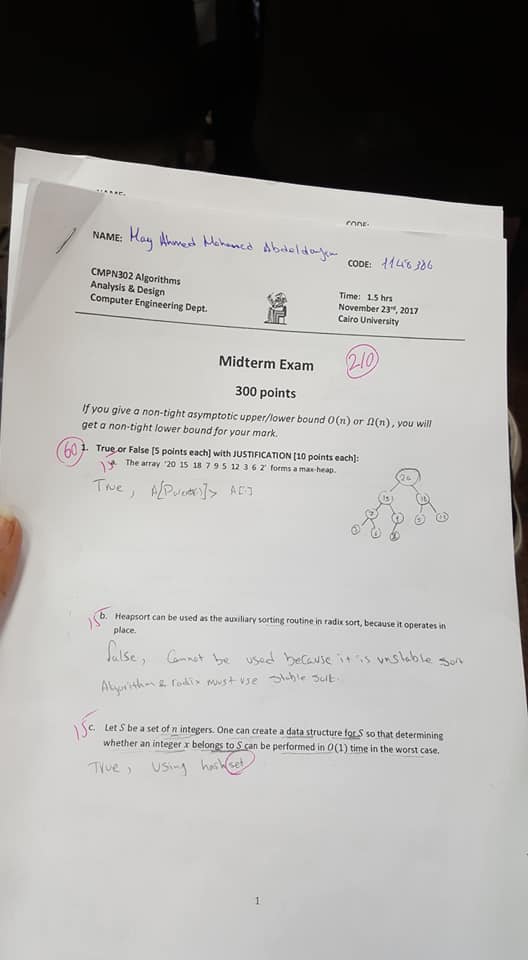 NAME: May Ahmed Mohamed Abdeldayem
CODE: 1148386
CMPN302 Algorithms
Analysis & Design
Computer Engineering Dept.
Time: 1.5 hrs
November 23rd, 2017
Cairo University
Midterm Exam
210
300 points
If you give a non-tight asymptotic upper/lower bound O(n) or Ω(n), you will
get a non-tight lower bound for your mark.
60
1. True or False [5 points each] with JUSTIFICATION [10 points each]:
15 a. The array '20 15 18 7 9 5 12 3 6 2' forms a max-heap.
True, A[Parent(i)] > A[i]
20
15 18
7 9 5 12
3 6 2
15 b. Heapsort can be used as the auxiliary sorting routine in radix sort, because it operates in
place.
false, Cannot be used because it is unstable sort
Algorithm & radix must use stable sort.
15 c. Let S be a set of n integers. One can create a data structure for S so that determining
whether an integer x belongs to S can be performed in O(1) time in the worst case.
True, using hash set
1